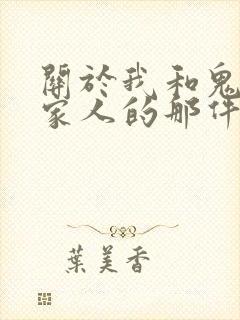 關於我和鬼
家人的那件
葉美香